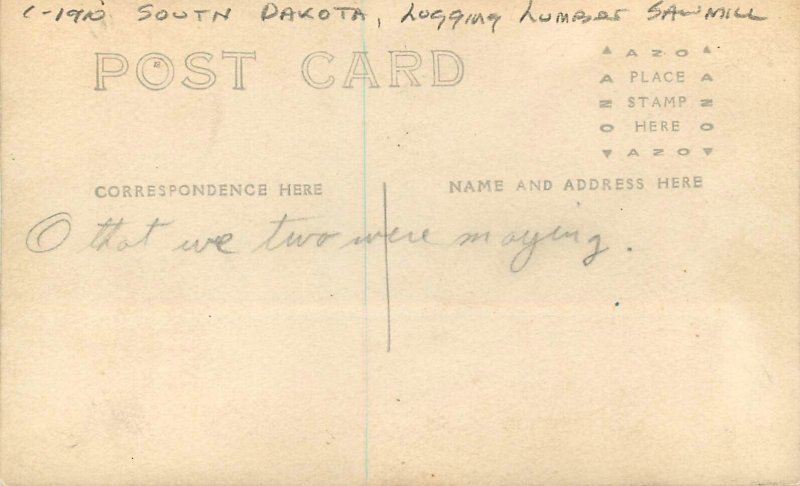 C-1910 SOUTH DAKOTA, LOGGING LUMBER SAWMILL
POST CARD
▲ AZO ▲
A PLACE A
N STAMP N
O HERE O
▼ AZO ▼
CORRESPONDENCE HERE
NAME AND ADDRESS HERE
O that we two were maying.